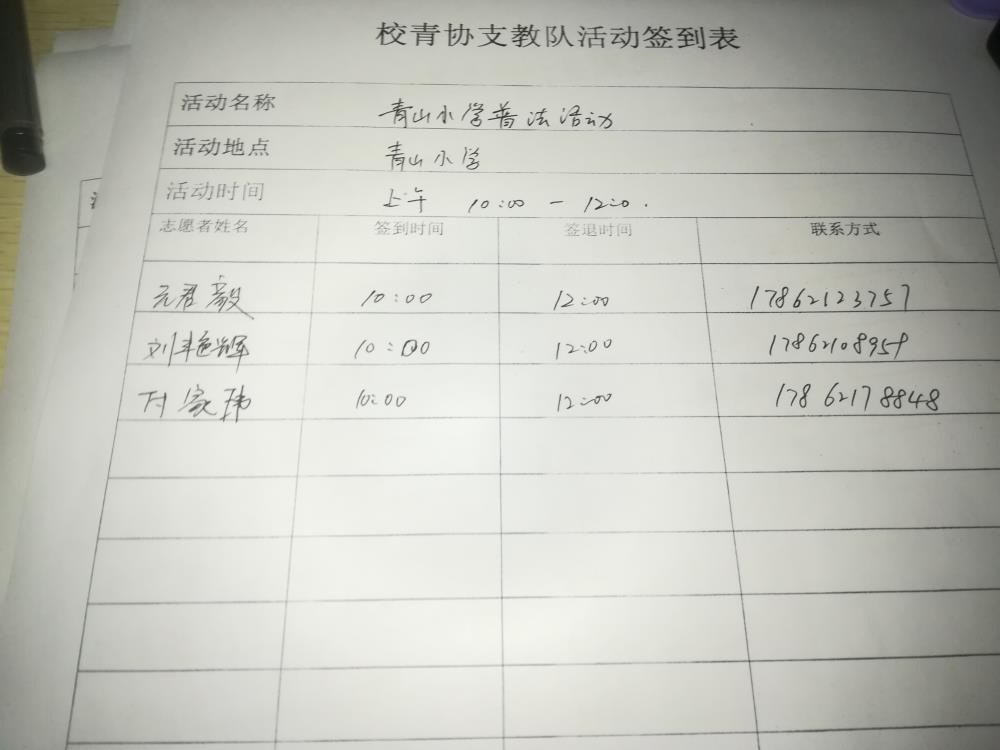 校青协支教队活动签到表
活动名称 青山小学普法活动
活动地点 青山小学
活动时间 上午 10:00 — 12:0.
志愿者姓名 签到时间 签退时间 联系方式
元君毅 10:00 12:00 17862123757
刘艳辉 10:00 12:00 17862108959
付家玮 10:00 12:00 17862178848